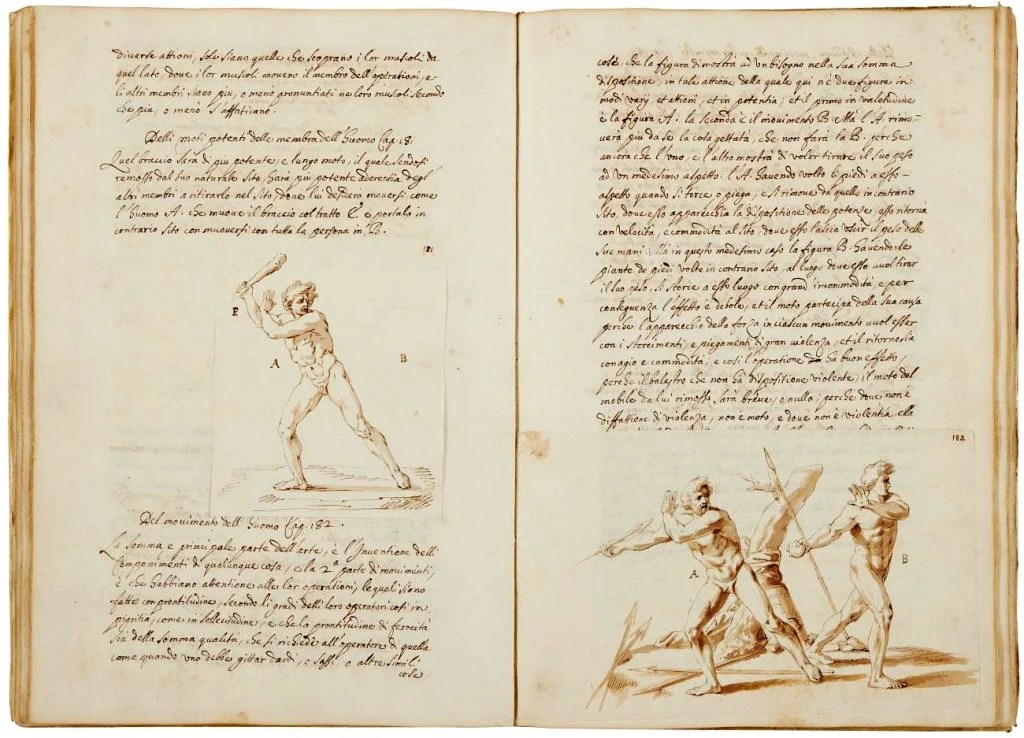 diverse attioni, sole siano quelle che scoprano i lor muscoli da
quel lato, dove i lor muscoli moveno il membro dell'operationi, e
li altri membri siano piu, o meno pronuntiati ne loro muscoli secondo
che piu, o meno s'affaticano.
Delli moti potenti delle membra dell'huomo Cap. 18
Quel braccio sera di piu potente, e lungo moto, il quale sendosi
remosso dal suo naturale sito, hara più potente aderentia degl'
altri membri a ritirarlo nel sito, dove lui desidera muoversi, come
l'huomo A. che muove il braccio col tratto E. e portalo in
contrario sito con muoversi con tutta la persona in B.
181
E
A
B
Del movimento dell'huomo Cap. 182.
La somma e principale parte dell'arte, è l'Inventione delli
Componimenti di qualunque cosa, e la 2ª parte di movimenti,
è che habbiano attentione alle lor operationi, le quali siano
fatte con prontitudine, secondo li gradi delli loro operatori cosi in
pigritia, come in sollecitudine, e che la prontitudine di ferocità
sia della somma qualità, che si richiede all'operatore di quella
come quando uno debbe gittar dardi, o sassi, o altre simili
cose
cose, che la figura dimostra ad un bisogno nella sua somma
dispositione, in tale attione della quale qui n'è due figure in
modi varij et attioni, et in potentia; et il primo in valetudine
è la figura A. la seconda è il movimento B. Ma l'A rimo-
verà piu da se la cosa gettata, che non farà la B. perche
ancora che l'uno, e l'altro mostra di voler tirare il suo peso
ad un medesimo aspetto: l'A. havendo volto li piedi a esso
aspetto quando si torce o piega, e si rimove da quello in contrario
sito, dove esso apparecchia la dispositione delle potenze, esso ritorna
con velocità, e commodità al sito, dove esso lascia uscir il peso delle
sue mani. Ma in questo medesimo caso la figura B. havendo le
piante de piedi volte in contrario sito, al luogo dove esso vuol tirar
il suo peso, si storce a esso luogo con grand'incommodità, e per
conseguenza l'effetto è debole, et il moto partecipa della sua causa
perche l'apparecchio della forza in ciascun movimento vuol esser
con i storcimenti, e piegamenti di gran violenza, et il ritorno sia
con agio e commodità, e cosi l'operatione ha buon effetto,
perche il balestro che non ha dispositione violente, il moto del
mobile da lui rimosso sarà breve, o nullo; perche dove non è
diffattione di violenza, non è moto, e dove non è violentia ella
182
A
B